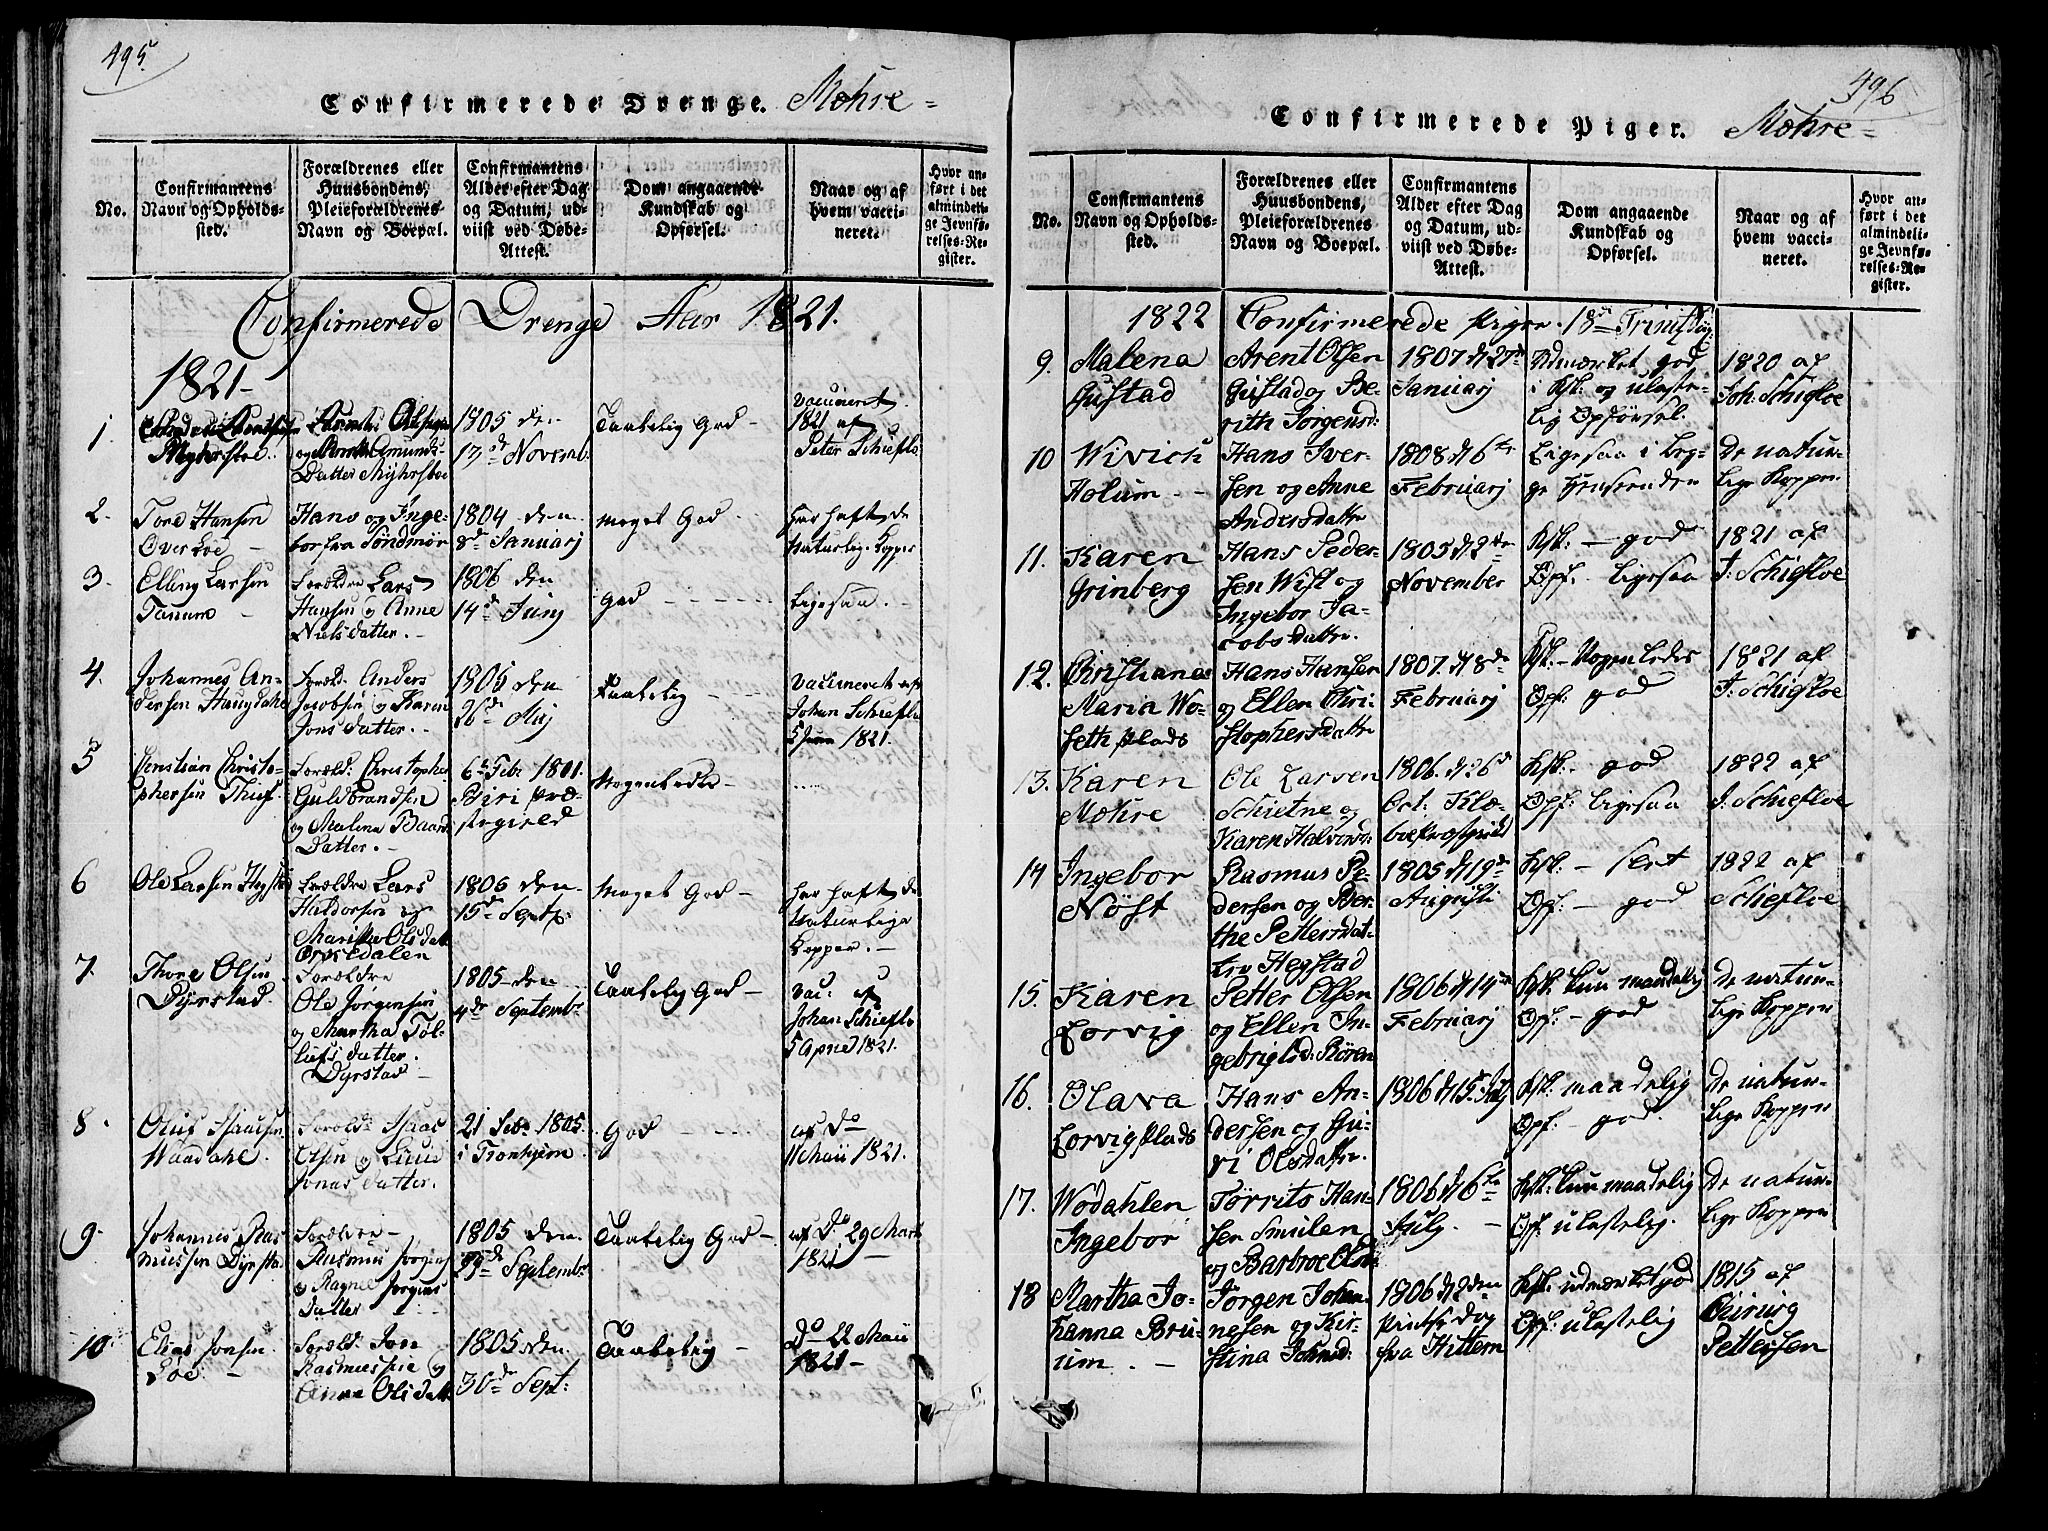 495
Confirmerede Drenge. Møhre-
No.
Confirmantens
Navn og Opholds-
sted.
Forældrenes eller
Huusbondens,
Pleieforældrenes
Navn og Boepæl.
Confirmantens
Alder efter Dag
og Datum, ud-
viist ved Døbe-
Attest.
Dom angaaende
Kundskab og
Opførsel.
Naar og af
hvem vacci-
neret.
Hvor an-
ført i det
almindeli-
ge Jevnfø-
relses-Re-
gister.
Confirmerede Drenge Aar 1821.
1821-
1.
Myhrsloe.
og Amunds-
Datter Myhrsloe
1805 den
17de Novemb:
Taalelig God -
vaccineret
1821 af
Peter Schieflo
2.
Tore Hansen
Over Loe -
Hans og Inge-
bor fra Søndmør
1804 den
8de Januarj
meget God -
har hafte de
Naturlig Kopper
3.
Elling Larsen
Tanum -
Foreldre Lars
Hansen og Anne
Nielsdatter. -
1806 den
14de Junj
God - - -
Ligesaa. -
4.
Johannes An-
dersen Haugdahl
Foreld: Anders
Jacobsen og Karen
Jons datter. -
1805 den
26de Maj
Taalelig - - -
Vaccineret af
Johan Schieflo
5 1821.
5
Christian Christo-
phersen Thief.
Foreld: Christopher
Guldbrandsen
og Malena Baard
Datter. -
6te Febr 1801.
Biri Præ-
stegield
Nogenledes -
6
Ole Larsen Hegstad
Foreldre Lars
Haldorsen og
Olsdatt
1805 den
15de Septb:
Meget God -
har hafte de
Naturlige
Kopper. -
7.
Thore Olsen
Dyrstad.
Foreldre
Ole Jørgensen
og Martha Tol-
lefsdatter.
Dyrstad -
1805 den
4de Septembr
Taalelig God -
vac: af
Johan Schieflo
5 April 1821.
8.
Oluf Isaacsen
Waadahl.
Foreld: Isaac
Olsen og
Jonas datter.
21 Febr 1805
i Tronhjem
God - - -
af Do
11 Maii 1821.
9.
Johannes Ras-
mussen Dyrstad
Foreldre -
Rasmus Jørgens
og Ragnel Jørgens
datter
1805 den
29de Septembr
Taalelig God -
af Do 29 Marti
1821 -
10.
Elias Jonsen
Loe. -
Foreld: Jon
Rasmussen og
Anne Olsdatt.
1805 den
30de Sept:
Taalelig -
Do 22 Maii
1821 -
496
Confirmerede Piger. Møhre-
No.
Confirmantens
Navn og Opholds-
sted.
Forældrenes eller
Huusbondens,
Pleieforældrenes
Navn og Boepæl.
Confirmantens
Alder efter Dag
og Datum, ud-
viist ved Døbe-
Attest.
Dom angaaende
Kundskab og
Opførsel.
Naar og af
hvem vacci-
neret.
Hvor an-
ført i det
almindeli-
ge Jevnfø-
relses-Re-
gister.
1822 Confirmerede Piger. 18de Trinit:
9.
Malena
Gustad
Arent Olsen
Gustad og Be-
rith Jørgensd:
1807 d 27de
Januarj
Udmærket god
i Ksk: og ulaste-
lig Opførsel.
1820 af
Joh: Schiefloe
10
Wivich
Holum - -
Hans Iver-
sen og Anne
Andersdattr
1808 d 6te
Februarj
Ligesaa i beg-
ge Henseender
De natur-
lige Kopper
11.
Karen
Grinberg
Hans Peder-
sen Wist og
Ingebor Ja-
cobsdattr.
1805 d 2de
November
Ksk: - god
Opf. Ligesaa
1821 af
J: Schiefloe
12.
Christiana
Maria Wo-
seth Plads
Hans Hansen
og Ellen Chri-
stophersdattr
1807. d 8de
Februarj
Ksk: - Nogenledes
Opf: god
1821 af
J: Schiefloe
13.
Karen
Møhre
Ole Larsen
Schietne og
Karen Halvorsd:
1806. d 26de
Oct: Klæ-
boe Præstegield
Ksk: - god
Opf: Ligesaa
1822 af
J: Schiefloe
14
Ingebor
Nøst
Rasmus Pe-
dersen og Ber-
the Pettersdat-
ter Hegstad
1805 d 19de
Augusti
Ksk: - sert
Opf: - god
1822 af
Schiefloe
15.
Karen
Lorvig
Petter Olsen
og Ellen In-
gebrigtsd: Røren
1806 d 14de
Februarj
Ksk: kun maadelig
Opf: - god
De natur-
lige Kopper
16.
Olava
Lorvig Plads
Hans An-
dersen og Gu-
ri Olsdattr.
1806 d 15 Julj
Ksk: maadelig
Opf. - god.
De natur-
lige Kopper
17.
Wodahlen
Ingebor
Tørris Han-
sen Smulen
og Barbroe Olsd:
1806 d 6te
Julj. -
Ksk: kun maadelig
Opf: ulastelig.
De natur-
lige Kopper
18
Martha Jo-
hanna Bru-
um. -
Jørgen Johan-
nesen og Kir-
stina Johnsd:
1806 d 2den
Pintse Dag
fra Hittern
Ksk: udmærket god
Opf: ulastelig
1815 af
Chirurg
Pettersen